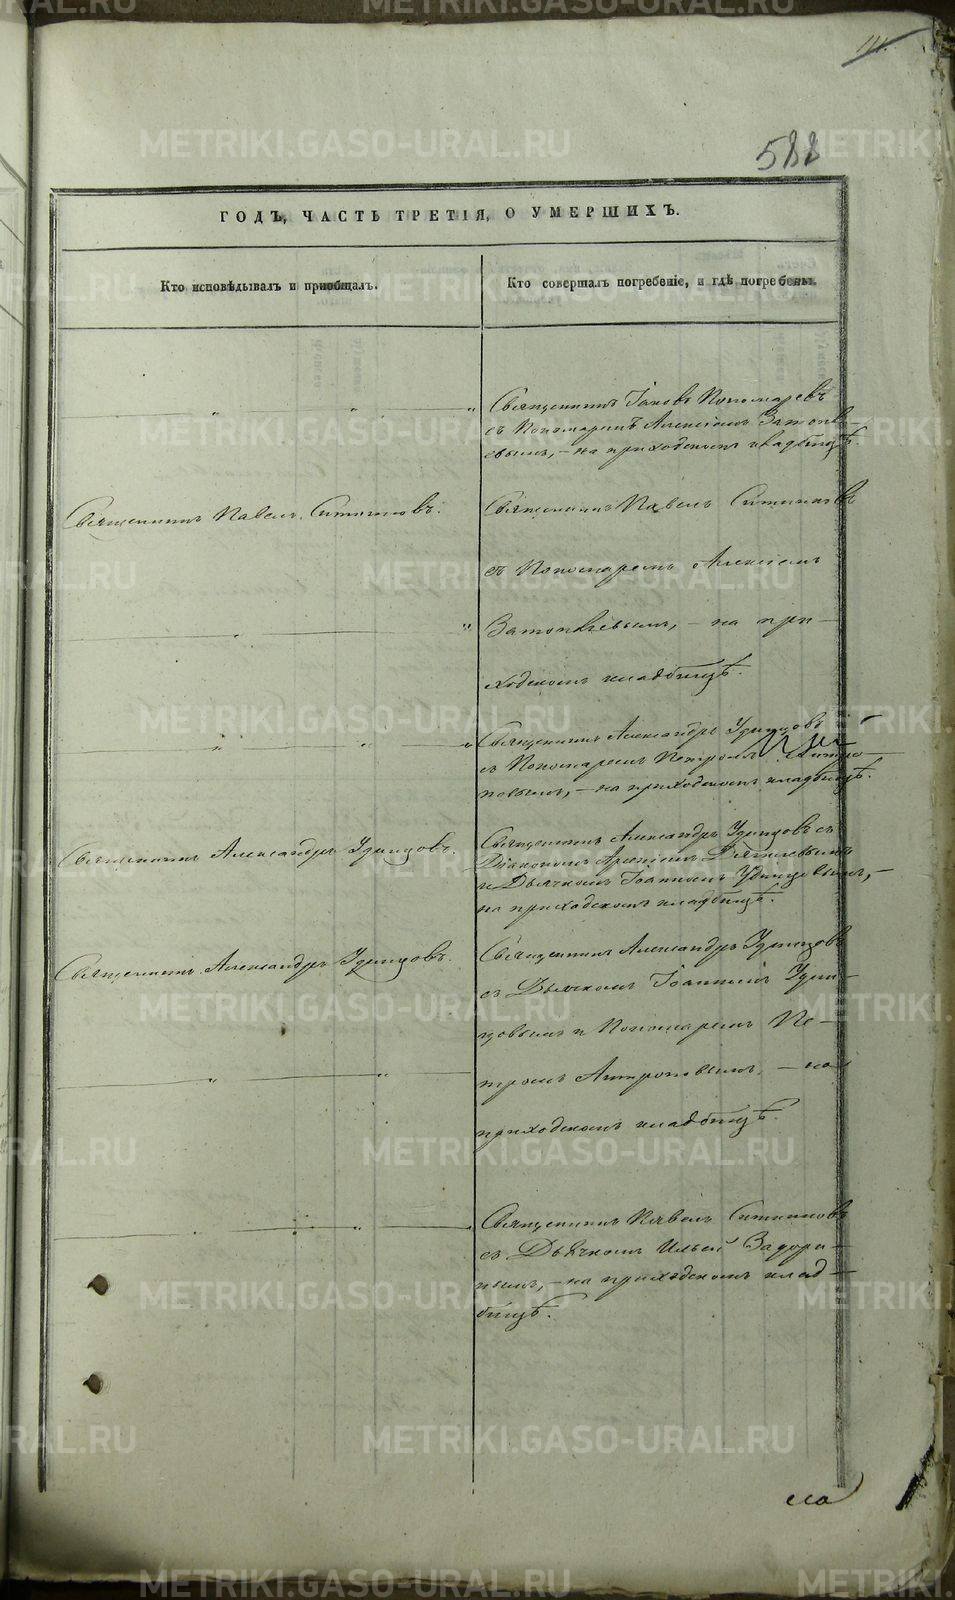 588
ГОДЪ, ЧАСТЬ ТРЕТІЯ, О УМЕРШИХЪ.
Кто исповѣдывалъ и приобщалъ.
Кто совершалъ погребеніе, и гдѣ погребены.
Священникъ Іаковъ Пономаревъ
съ Пономаремъ Алексіемъ
на приходскомъ кладбищѣ.
Священникъ Павелъ Ситниковъ.
Священникъ Павелъ Ситниковъ
съ Пономаремъ Алексіемъ
на при-
ходскомъ кладбищѣ.
Священникъ Александръ Удинцовъ
съ Пономаремъ Петромъ Антро-
повымъ, – на приходскомъ кладбищѣ.
Священникъ Александръ Удинцовъ.
Священникъ Александръ Удинцовъ съ
Діакономъ Арсеніемъ
и Дьячкомъ Іоанномъ Удинцовымъ, –
на приходскомъ кладбищѣ.
Священникъ Александръ Удинцовъ.
Священникъ Александръ Удинцовъ
съ Дьячкомъ Іоанномъ Удин-
цовымъ и Пономаремъ Пе-
тромъ Антроповымъ, – на
приходскомъ кладбищѣ.
Священникъ Павелъ Ситниковъ
съ Дьячкомъ Ильей Задори-
нымъ, – на приходскомъ клад-
бищѣ.
METRIKI.GASO-URAL.RU